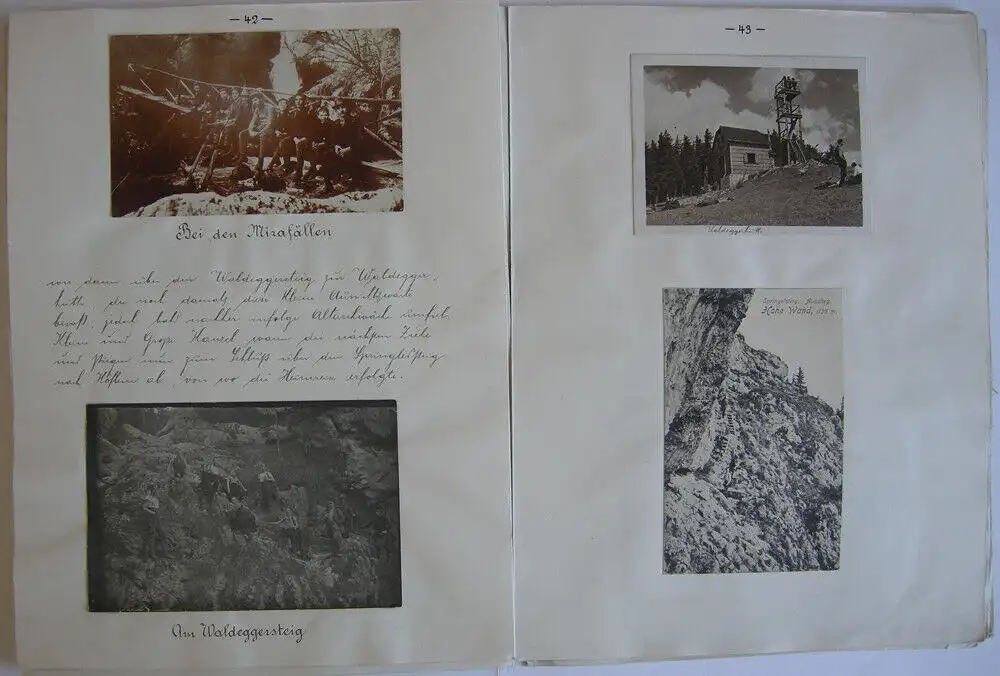 — 42 —
Bei den Mirafällen
von dann über den Waldeggersteig zur Waldegger-
hütte, die noch damals diese kleine Aussichtswarte
besaß, jedoch bald nachher infolge Altersschwäch umfiel.
Kleine und Große Kanzel waren die nächsten Ziele
und stiegen wir zum Schluß über den Springlessteig
nach Höflein ab, von wo die Heimreise erfolgte.
Am Waldeggersteig
— 43 —
Waldeggerhütte
Springlessteig, Ausstieg.
Hohe Wand, 1135 m.